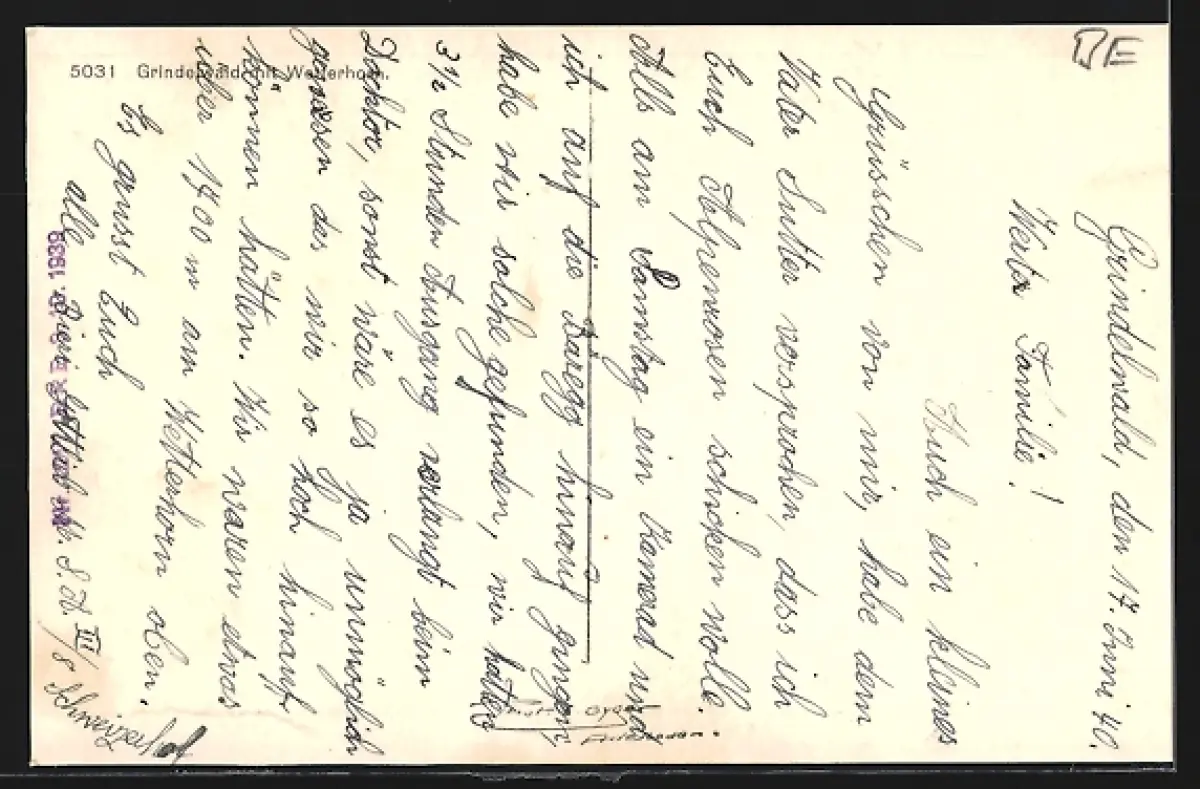 Grindelwald, den 17. Juni 40.
Werte Familie!
Auch ein kleines
Grüsschen von mir, habe dem
Vater Sutter versprochen, dass ich
Euch Alpenrosen schicken wolle.
Alls am Samstag ein Kamerad und
ich auf die Bäregg hinauf gingen,
habe wir solche gefunden, wir hatten
3½ Stunden Ausgang verlangt beim
Docktor, sonst wäre es ja unmöglich
gewesen das wir so hoch hinauf
können hätten. Wir waren etwas
über 1700 m am Wetterhorn oben.
Es grusst Euch
alle
M.S.A. III/8 Schweizerhof
5031 Grindelwald mit Wetterhorn.
BE
1939